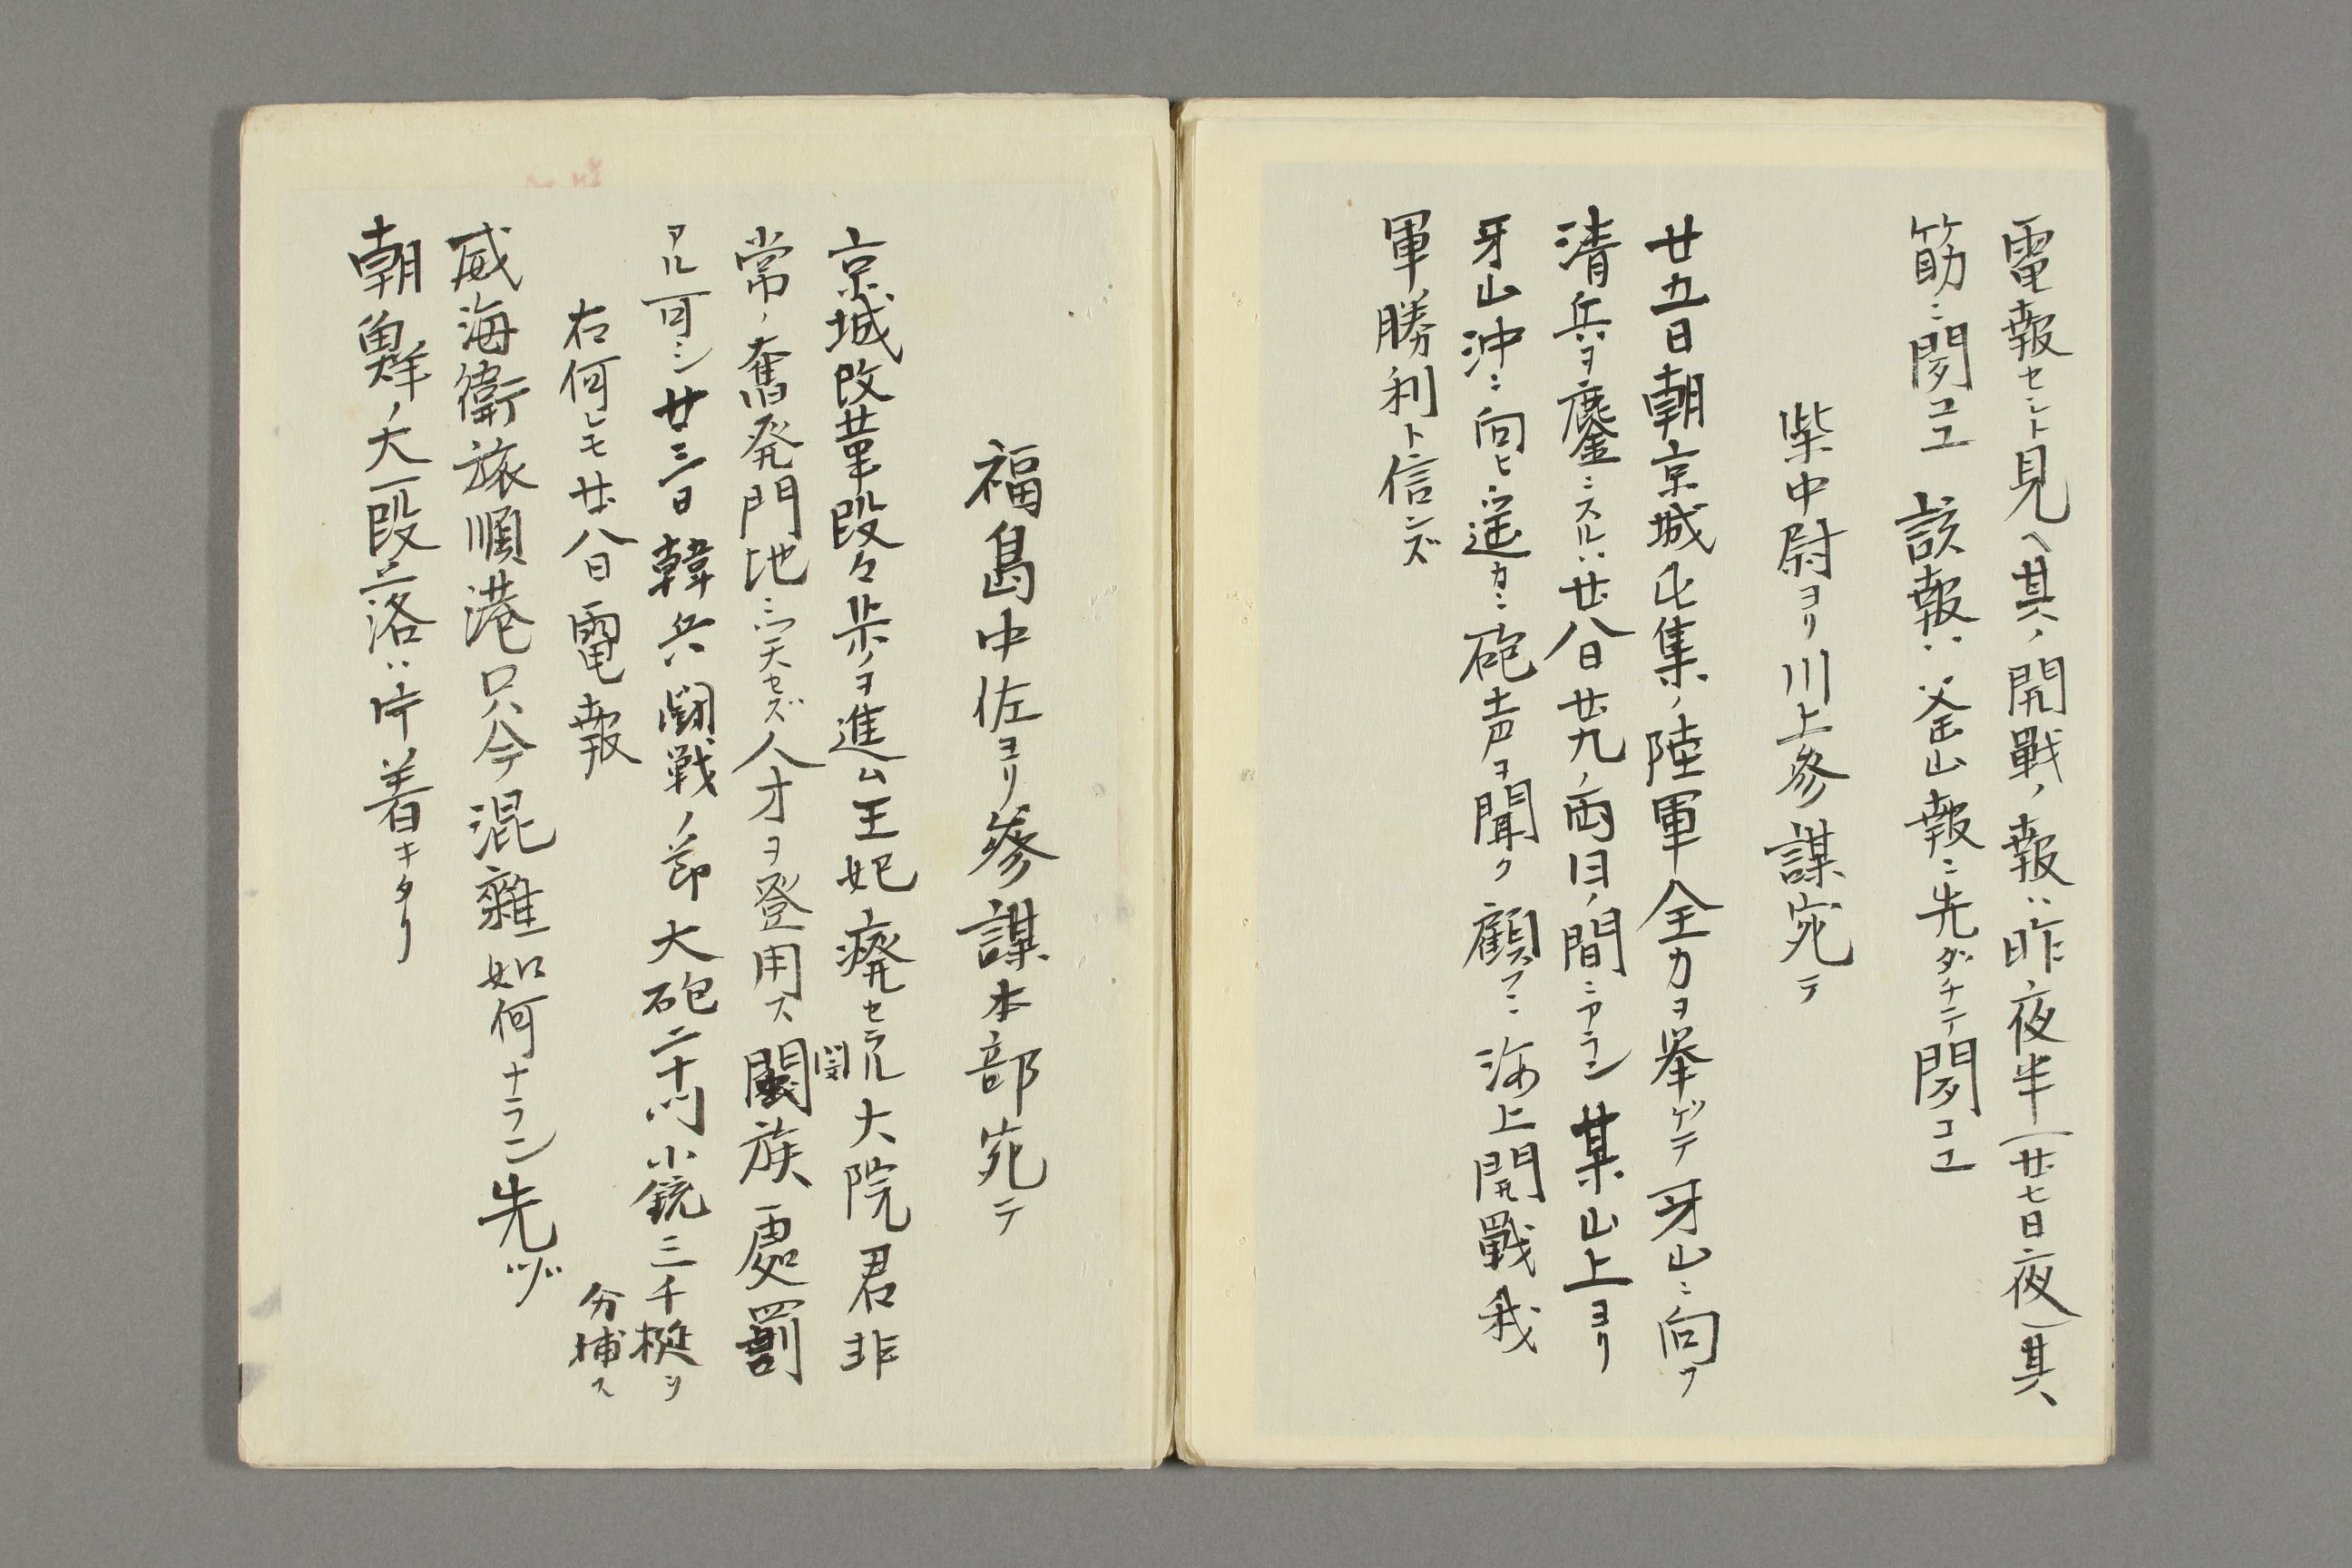 電報セント見ヘ其ノ開戰ノ報ハ昨夜半(廿七日夜)其
筋ニ聞コエ 該報ハ釜山報ニ先ダチテ聞コエ
柴中尉ヨリ川上參謀宛テ
廿五日朝京城屯集ノ陸軍全力ヲ挙ゲテ牙山ニ向フ
清兵ヲ鏖ニスルハ廿八日廿九ノ両日ノ間ニアラン 某山上ヨリ
牙山沖ニ向ヒ遥カニ砲声ヲ聞ク 顧フニ海上開戰我
軍勝利ト信ズ
福島中佐ヨリ參謀本部宛テ
京城改革段々歩ヲ進ム王妃癈セラル大院君非
常ノ奮発門地ニ関セズ人才ヲ登用ス閔族処罰
閔
アル可シ廿三日韓兵闘戦ノ節大砲二十門小銃三千梃ツ
分捕ス
右何レモ廿八日電報
威海衛旅順港只今混雜如何ナラン先ヅ
朝鮮ノ大一段落ハ片着キタリ